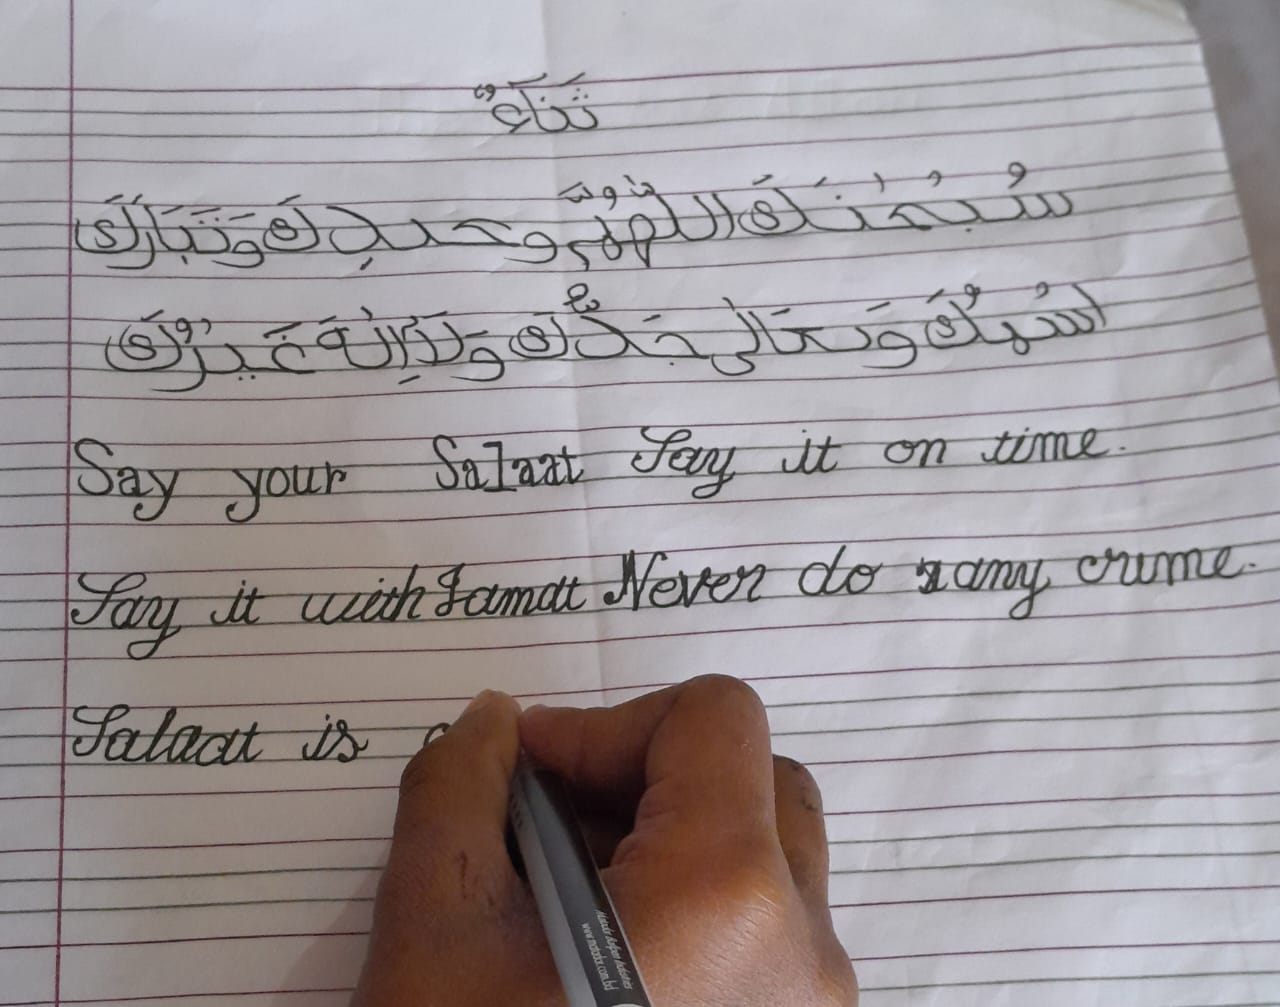 ثَنَاءٌ
سُبْحٰنَكَ اللّٰهُمَّ وَحمدِكَ وَتَبَارَكَ
اسْمُكَ وَتَعَالٰى جَدُّكَ وَلَآاِلٰهَ غَيْرُكَ
Say your Salaat Say it on time.
Say it with Jamat Never do any crime.
Salaat is
www.matador.com.bd